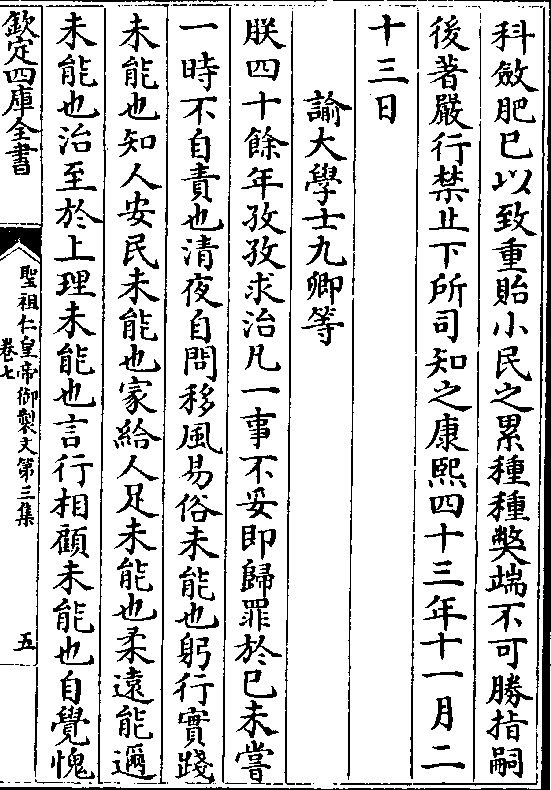 科斂肥已以致重貽小民之累種種獘端不可勝指嗣
後著嚴行禁止下所司知之康熙四十三年十一月二
十三日
諭大學士九卿等
朕四十餘年孜孜求治凡一事不妥即歸罪於已未嘗
一時不自責也清夜自問移風易俗未能也躬行實踐
未能也知人安民未能也家給人足未能也柔遠能邇
未能也治至於上理未能也言行相顧未能也自覺愧
欽定四庫全書
聖祖仁皇帝御製文第三集
卷七
五